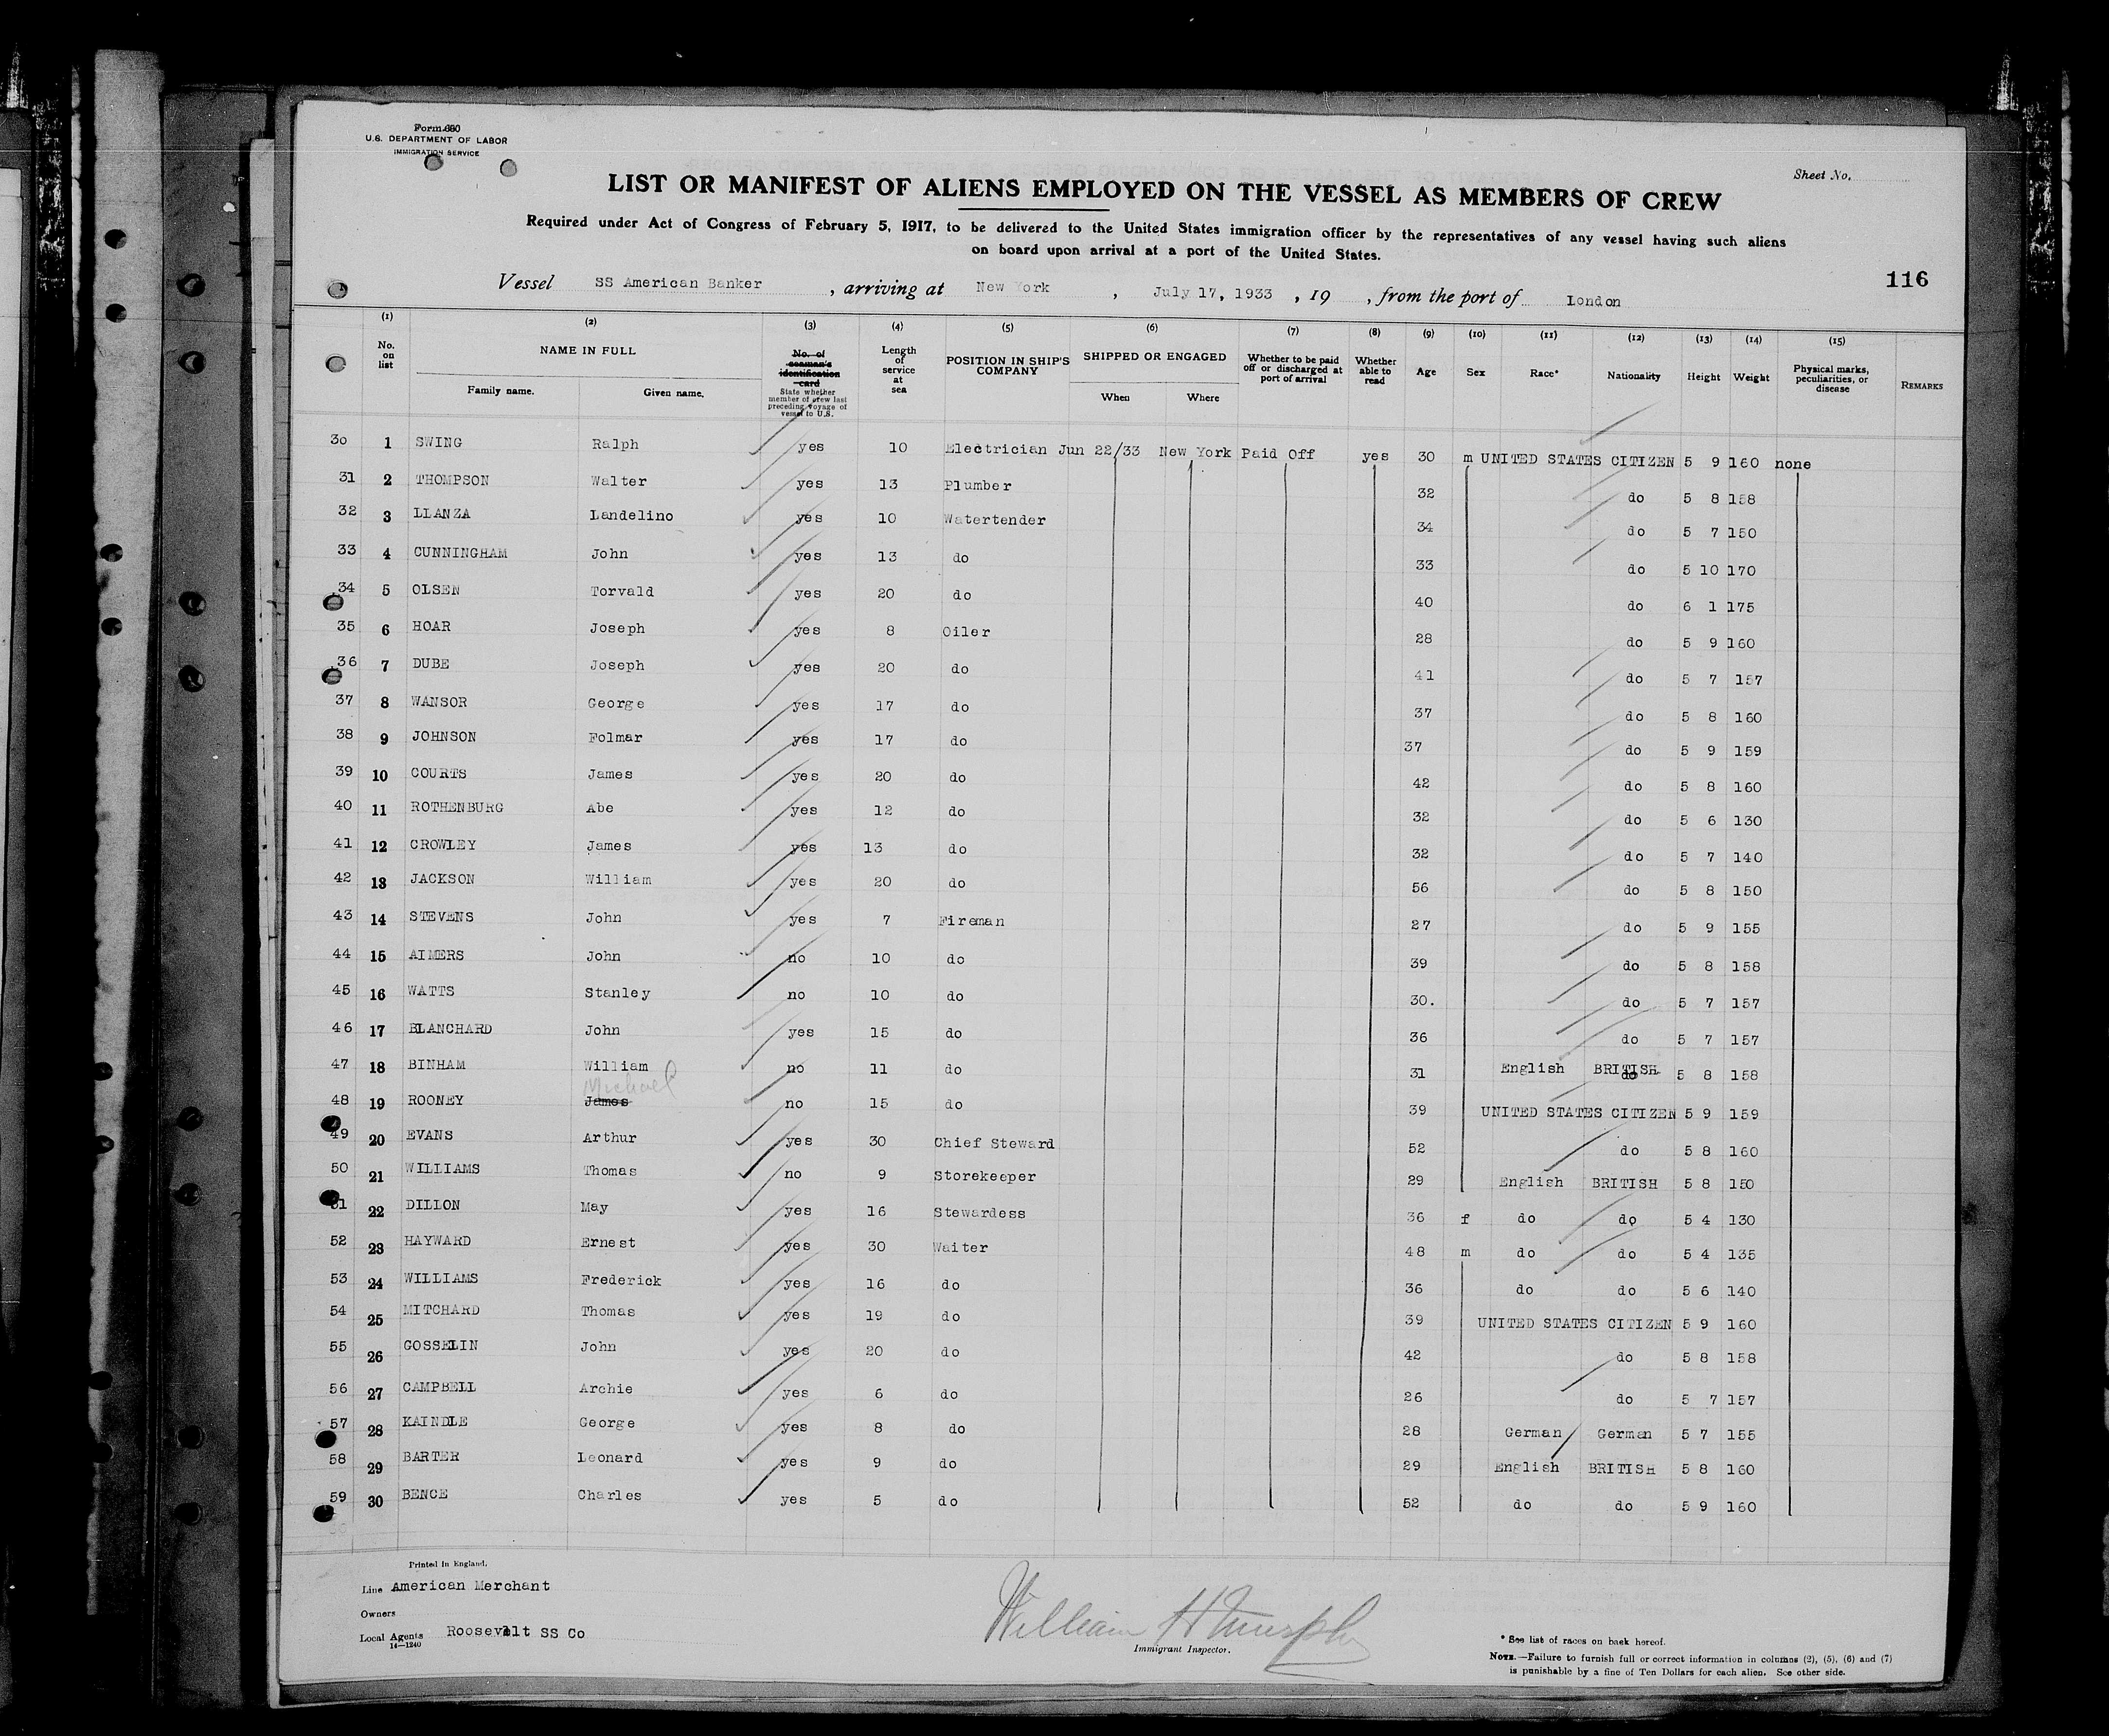 Form 680
U.S. DEPARTMENT OF LABOR
IMMIGRATION SERVICE
Sheet No.
LIST OR MANIFEST OF ALIENS EMPLOYED ON THE VESSEL AS MEMBERS OF CREW
Required under Act of Congress of February 5, 1917, to be delivered to the United States immigration officer by the representatives of any vessel having such aliens
on board upon arrival at a port of the United States.
116
Vessel SS American Banker , arriving at New York , July 17, 1933 , 19 , from the port of London
(1) (2) (3) (4) (5) (6) (7) (8) (9) (10) (11) (12) (13) (14) (15)
No. on list NAME IN FULL Family name. Given name. No. of seaman's identification card State whether member of crew last preceding voyage of vessel to U.S. Length of service at sea POSITION IN SHIP'S COMPANY SHIPPED OR ENGAGED When Where Whether to be paid off or discharged at port of arrival Whether able to read Age Sex Race* Nationality Height Weight Physical marks, peculiarities, or disease REMARKS
30 1 SWING Ralph yes 10 Electrician Jun 22/33 New York Paid Off yes 30 m UNITED STATES CITIZEN 5 9 160 none
31 2 THOMPSON Walter yes 13 Plumber 32 do 5 8 158
32 3 LLANZA Landelino yes 10 Watertender 34 do 5 7 150
33 4 CUNNINGHAM John yes 13 do 33 do 5 10 170
34 5 OLSEN Torvald yes 20 do 40 do 6 1 175
35 6 HOAR Joseph yes 8 Oiler 28 do 5 9 160
36 7 DUBE Joseph yes 20 do 41 do 5 7 157
37 8 WANSOR George yes 17 do 37 do 5 8 160
38 9 JOHNSON Folmar yes 17 do 37 do 5 9 159
39 10 COURTS James yes 20 do 42 do 5 8 160
40 11 ROTHENBURG Abe yes 12 do 32 do 5 6 130
41 12 CROWLEY James yes 13 do 32 do 5 7 140
42 13 JACKSON William yes 20 do 56 do 5 8 150
43 14 STEVENS John yes 7 Fireman 27 do 5 9 155
44 15 AIMERS John no 10 do 39 do 5 8 158
45 16 WATTS Stanley no 10 do 30. do 5 7 157
46 17 BLANCHARD John yes 15 do 36 do 5 7 157
47 18 BINHAM William no 11 do 31 English BRITISH do 5 8 158
Michael
48 19 ROONEY James no 15 do 39 UNITED STATES CITIZEN 5 9 159
49 20 EVANS Arthur yes 30 Chief Steward 52 do 5 8 160
50 21 WILLIAMS Thomas no 9 Storekeeper 29 English BRITISH 5 8 150
51 22 DILLON May yes 16 Stewardess 36 f do do 5 4 130
52 23 HAYWARD Ernest yes 30 Waiter 48 m do do 5 4 135
53 24 WILLIAMS Frederick yes 16 do 36 do do 5 6 140
54 25 MITCHARD Thomas yes 19 do 39 UNITED STATES CITIZEN 5 9 160
55 26 GOSSELIN John yes 20 do 42 do 5 8 158
56 27 CAMPBELL Archie yes 6 do 26 do 5 7 157
57 28 KAINDLE George yes 8 do 28 German German 5 7 155
58 29 BARTER Leonard yes 9 do 29 English BRITISH 5 8 160
59 30 BENCE Charles yes 5 do 52 do do 5 9 160
Printed in England.
Line American Merchant
Owners
Local Agents Roosevelt SS Co
14-1240
William H Murphy
Immigrant Inspector.
* See list of races on back hereof.
NOTE.—Failure to furnish full or correct information in columns (2), (5), (6) and (7)
is punishable by a fine of Ten Dollars for each alien. See other side.